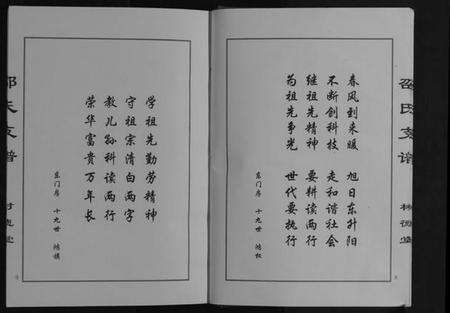 邵氏支谱
春风到来暖 旭日东升阳
不断创科技 走和谐社会
继祖先精神 要耕读两行
为祖先争光 世代要执行
东门房 十九世 鸿权
学祖先勤劳精神
守祖宗清白两字
教儿孙科读两行
荣华富贵万年长
东门房 十九世
邵氏支谱